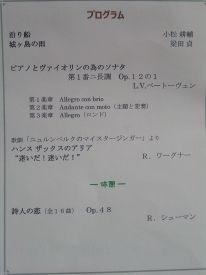 プログラム
泊り船 小松 耕輔
城ヶ島の雨 梁田 貞
ピアノとヴァイオリンの為のソナタ
第1番ニ長調 Op.12の1
L.V.ベートーヴェン
第1楽章 Allegro con brio
第2楽章 Andante con moto（主題と変奏）
第3楽章 Allegro（ロンド）
歌劇「ニュルンベルクのマイスタージンガー」より
ハンス ザックスのアリア
"迷いだ！迷いだ！" R．ワーグナー
－休憩－
詩人の恋（全16曲） Op.48
R．シューマン